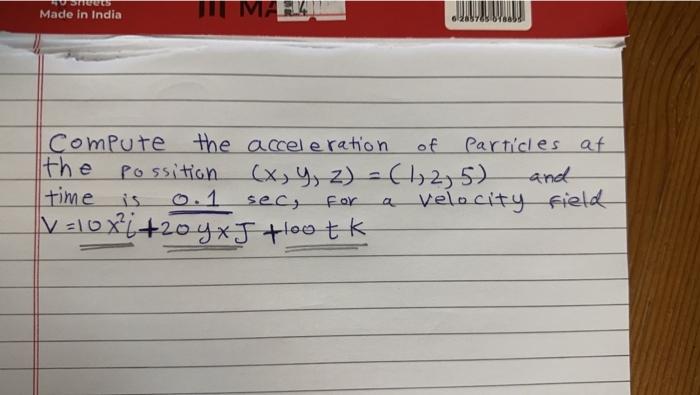 40 Sheets
Made in India
6 285765 018895
Compute the acceleration of Particles at
the possition (x, y, z) = (1, 2, 5) and
time is 0.1 sec, For a velocity field
V = 10x²i + 20yxJ + 100tK